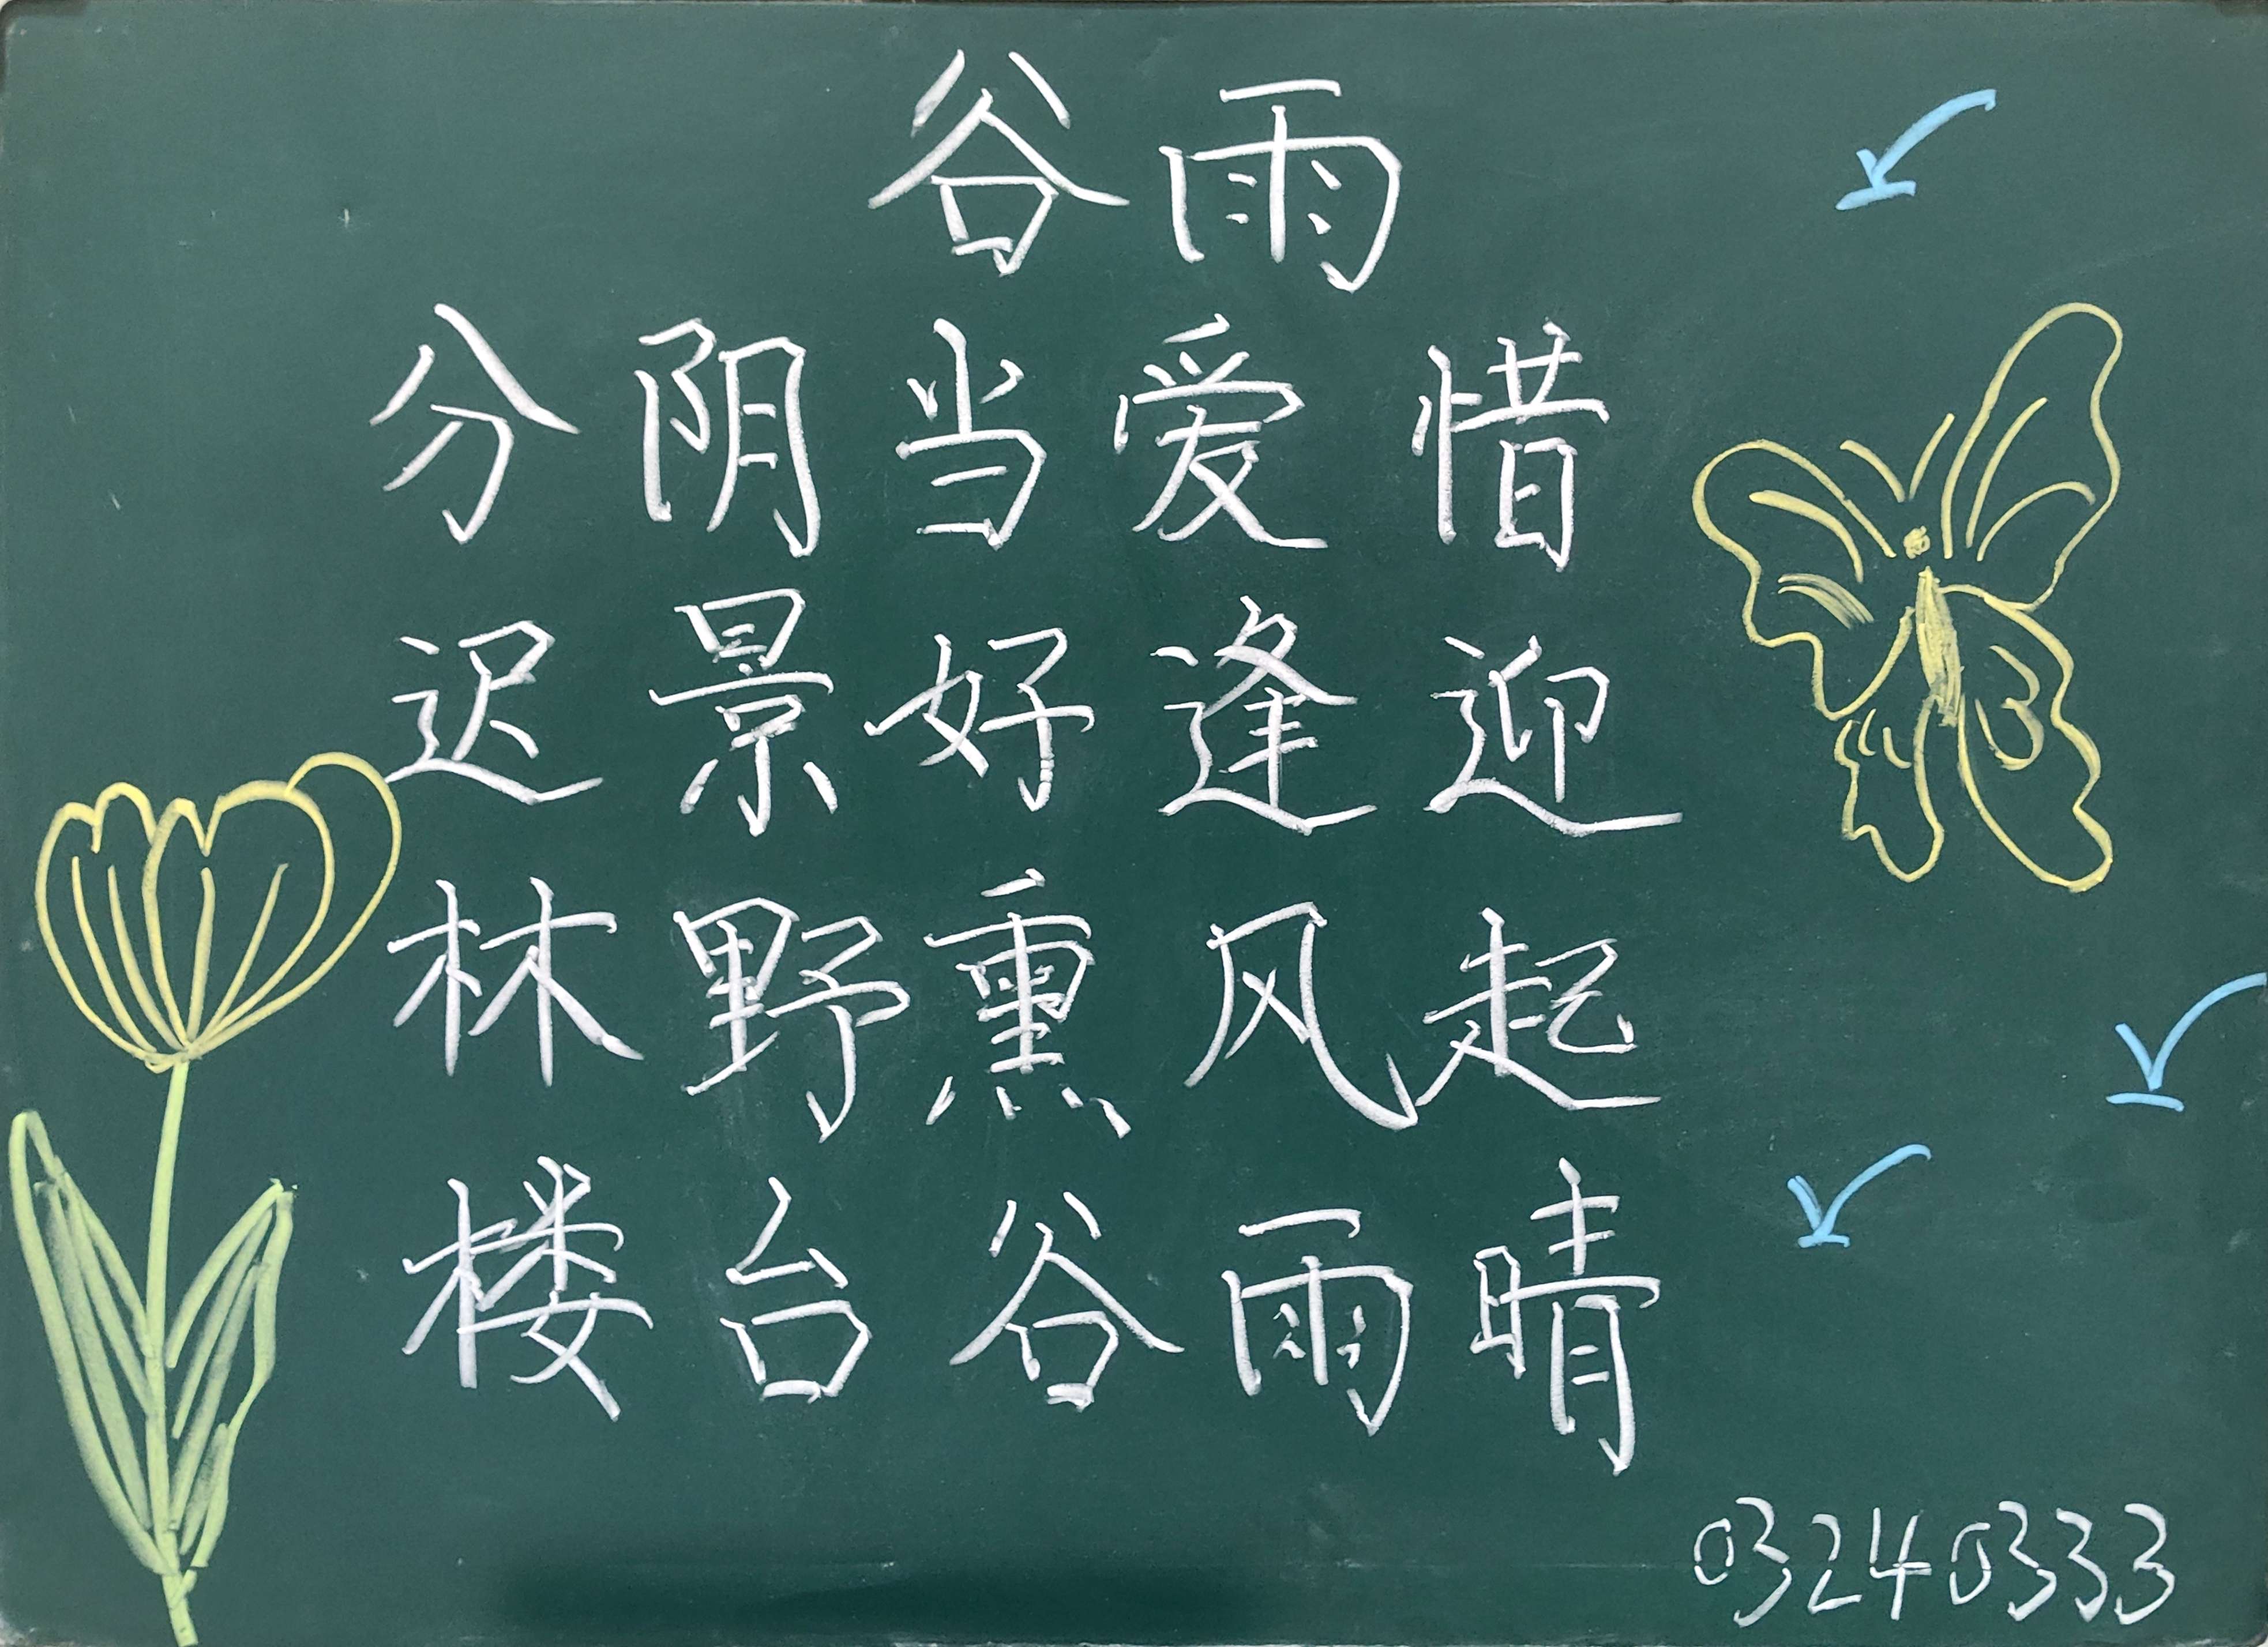 谷雨
分阴当爱惜
迟景好逢迎
林野熏风起
楼台谷雨晴
03240333